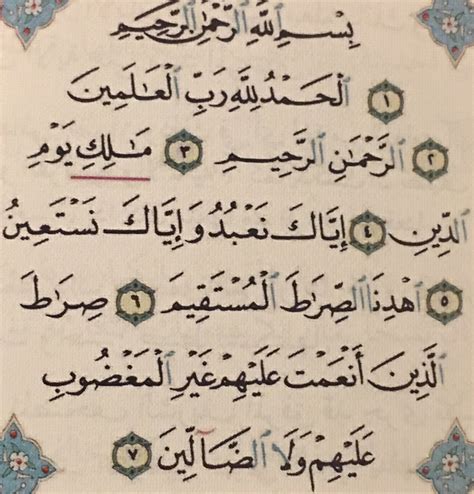 بِسْمِ اللَّهِ الرَّحْمَٰنِ الرَّحِيمِ
١ الْحَمْدُ لِلَّهِ رَبِّ الْعَالَمِينَ
٢ الرَّحْمَٰنِ الرَّحِيمِ ٣ مَالِكِ يَوْمِ
الدِّينِ ٤ إِيَّاكَ نَعْبُدُ وَإِيَّاكَ نَسْتَعِينُ
٥ اهْدِنَا الصِّرَاطَ الْمُسْتَقِيمَ ٦ صِرَاطَ
الَّذِينَ أَنْعَمْتَ عَلَيْهِمْ غَيْرِ الْمَغْضُوبِ
عَلَيْهِمْ وَلَا الضَّالِّينَ ٧